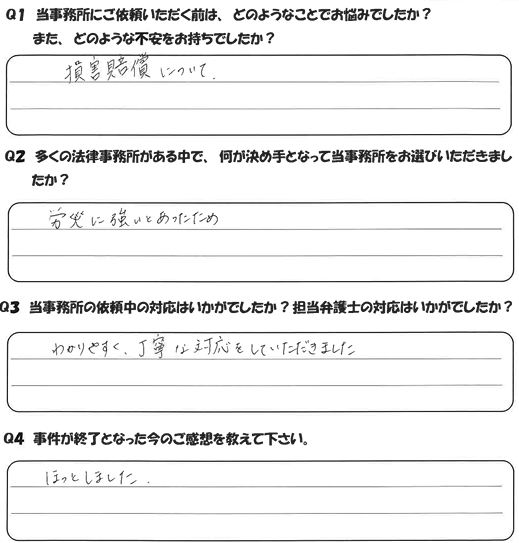 Q1 当事務所にご依頼いただく前は、どのようなことでお悩みでしたか？
また、どのような不安をお持ちでしたか？
損害賠償について.
Q2 多くの法律事務所がある中で、何が決め手となって当事務所をお選びいただきまし
たか？
労災に強いとあったため
Q3 当事務所の依頼中の対応はいかがでしたか？担当弁護士の対応はいかがでしたか？
わかりやすく、丁寧な対応をしていただきました
Q4 事件が終了となった今のご感想を教えて下さい。
ほっとしました.